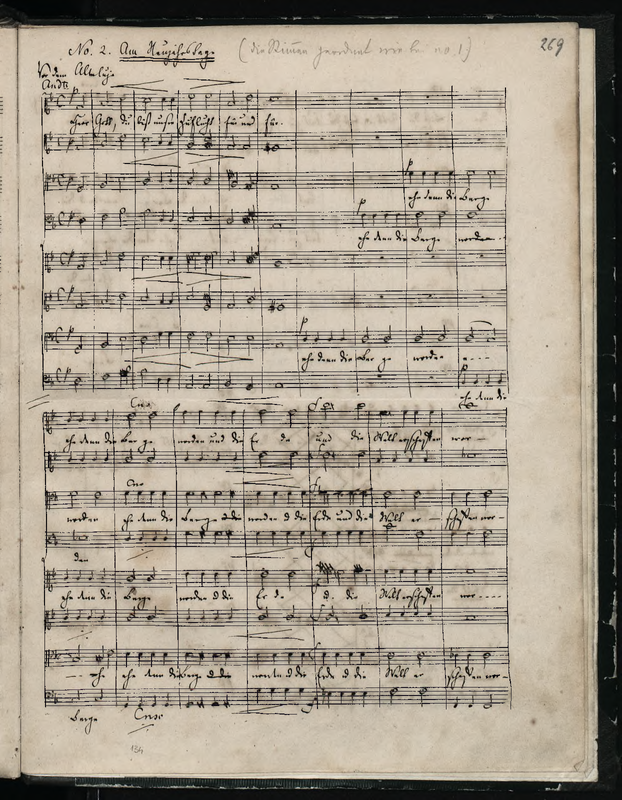 No. 2. Am Neujahrstage (die Stimmen geordnet wie bei no. 1) 269
Vor dem Alleluja
Andte
Herr Gott, du bist unsre Zuflucht für und für.
ehe denn die Berge
ehe denn die Berge worden
ehe denn die Berge worden
ehe denn die
Cresc.
ehe denn die Berge worden und die Erde und die Welt erschaffen wor-
Cresc
worden ehe denn die Berge worden die Erde und die Welt er- schaffen wor-
den
ehe denn die Berge worden die Erde die Welt erschaffen wor-
ehe denn die Berge worden die Erde die Welt er schaffen wor-
Berge Cresc
134